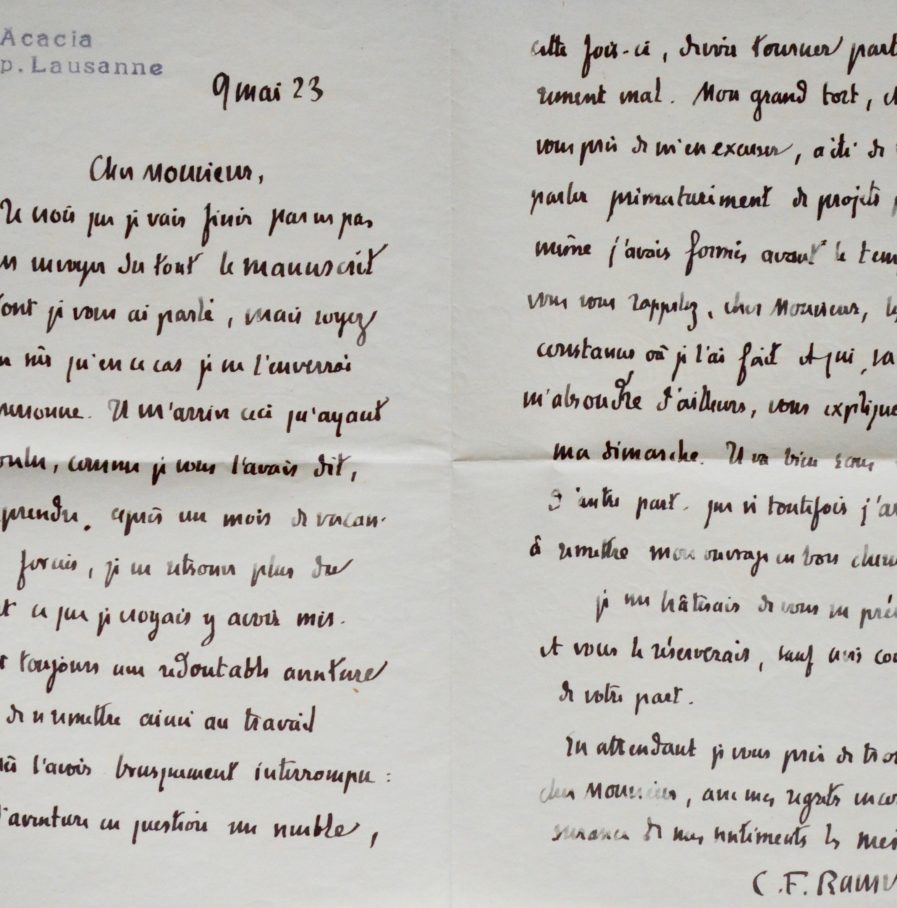 Acacia
p. Lausanne
9 mai 23
Cher Monsieur,
Je crois que je vais finir par ne pas
envoyer du tout le manuscrit
dont je vous ai parlé, mais soyez
sûr qu'en ce cas je ne l'enverrai
personne. Il m'arrive ceci qu'ayant
voulu, comme je vous l'avais dit,
prendre, après un mois de vacan-
forcées, je ne retrouve plus du
t ce que je croyais y avoir mis.
toujours une redoutable aventure
de se remettre ainsi au travail
l'avoir brusquement interrompu :
l'aventure en question me semble,
cette fois-ci, devoir tourner parti
rement mal. Mon grand tort, et
vous prie de m'en excuser, a été de
parler prématurément de projets
même j'avais formés avant le tem
vous vous rappelez, cher Monsieur, le
constances où je l'ai fait et qui,
m'absoudre d'ailleurs, vous explique
ma démarche. Il va bien sans
d'autre part, que si toutefois j'ar
à remettre mon ouvrage en bon chem
je me hâterais de vous en pré
et vous le réserverais, sauf avis co
de votre part.
En attendant je vous prie de tro
cher Monsieur, avec mes regrets
surance de mes sentiments les mei
C. F. Ramu